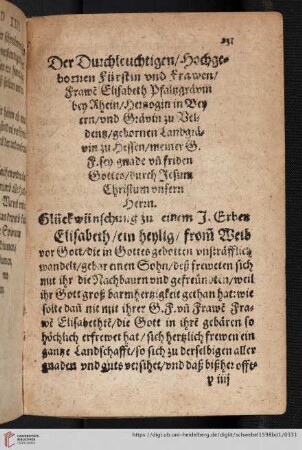 231
Der Durchleuchtigen/ Hochge-
bornen Fürstin vnd Frawen/
Frawē Elisabeth Pfaltzgrävin
bey Rhein/ Hertzogin in Bey
ern/ vnd Grävin zu Vel-
dentz/ gebornen Landgrä-
vin zu Hessen/ meiner G.
F. sey gnade vñ friden
Gottes/ durch Jesum
Christum vnsern
Herrn.
Glückwünschung zu einem J. Erben
Elisabeth/ ein heylig/ from̄ Weib
vor Gott/ die in Gottes gebotten vnsträfflich
wandelt/ gebar einen Sohn/ deß freweten sich
mit ihr die Nachbaurn vnd gefreündten/ weil
ihr Gott groß barmhertzigkeit gethan hat: wie
solte dañ nit mit ihrer G. F. vñ Frawē Fra-
wē Elisabethē/ die Gott in ihrē gebären so
höchlich erfrewet hat/ sich hertzlich frewen ein
gantze Landschafft/ so sich zu derselbigen aller
gnaden vnd guts versihet/ vnd daß bißher offe-
p iiij
https://digi.ub.uni-heidelberg.de/diglit/schwebel1598bd1/0331